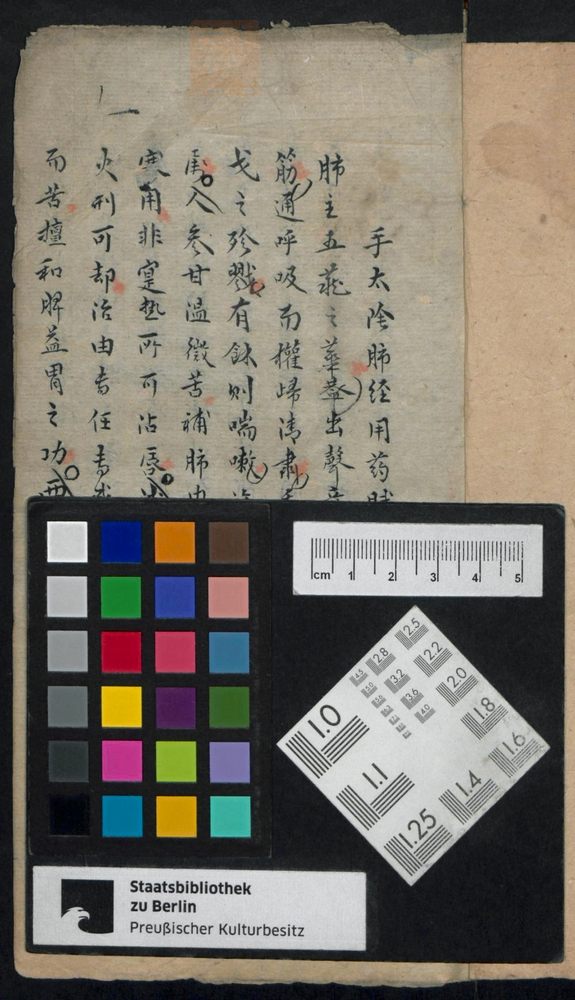 手太陰肺経用药賦
肺主五蔵之華葢出聲音
筋通呼吸而權㱕清肅
戈之殄戮有餘則喘嗽
入參甘溫微苦補肺中
寒用非寔热所可沾唇
火刑可却治由者任
而苦擅和脾益胃之功
cm 1 2 3 4 5
2.5
2.8 2.2
4.5 3.2 2.0
5.0 3.6 1.8
4.0 1.6
1.0 1.4
1.1 1.25
Staatsbibliothek
zu Berlin
Preußischer Kulturbesitz